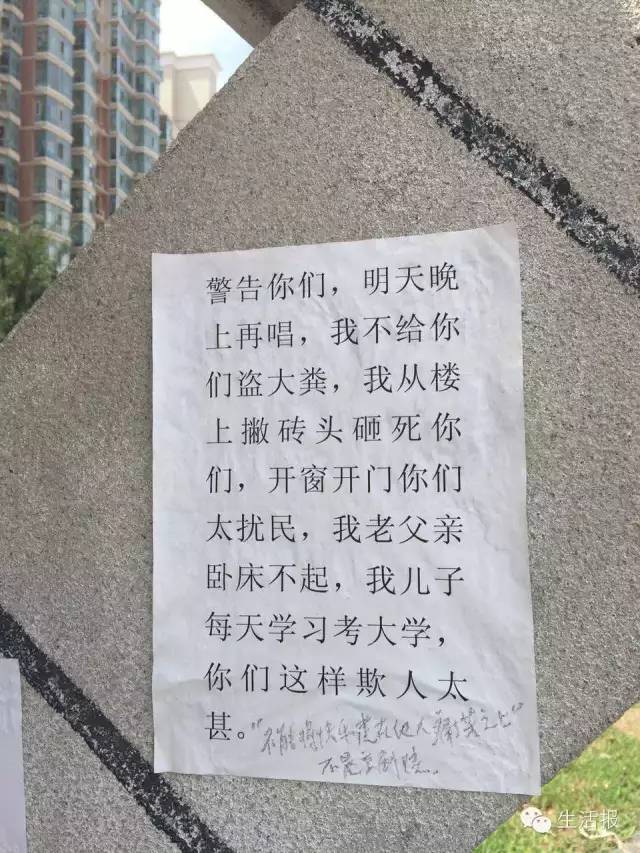 警告你们，明天晚
上再唱，我不给你
们盗大粪，我从楼
上撇砖头砸死你
们，开窗开门你们
太扰民，我老父亲
卧床不起，我儿子
每天学习考大学，
你们这样欺人太
甚。
"不能将快乐建在他人痛苦之上"
不是京剧院。
生活报